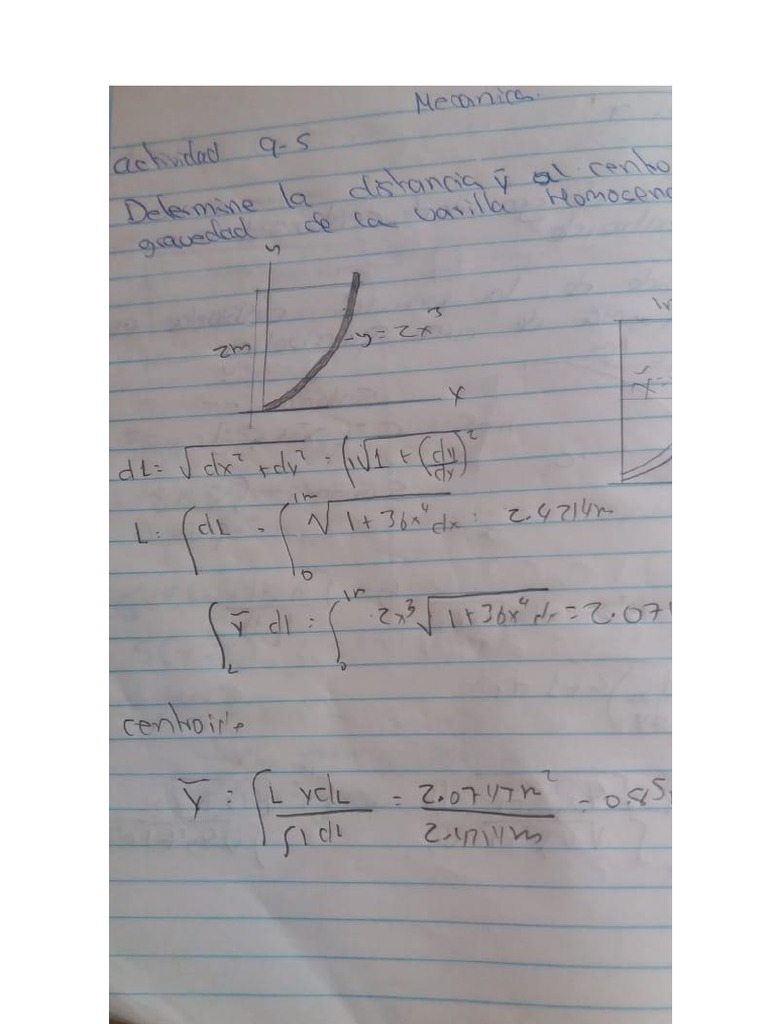 Mecanica.
actividad 9-5
Determine la distancia ȳ al centro
gravedad de la varilla Homogen
y
2m
y = 2x³
x
1m
x̃ =
dL = √dx² + dy² = (√1 + (dy/dx)²
L: ∫dL = ∫₀^1m √1 + 36x⁴ dx : 2.4214m
∫_L ȳ dl = ∫₀^1m 2x³ √1 + 36x⁴ dx = 2.07
centroide
ȳ : ∫L ydL / ∫L dL = 2.0747m² / 2.4214m = 0.85